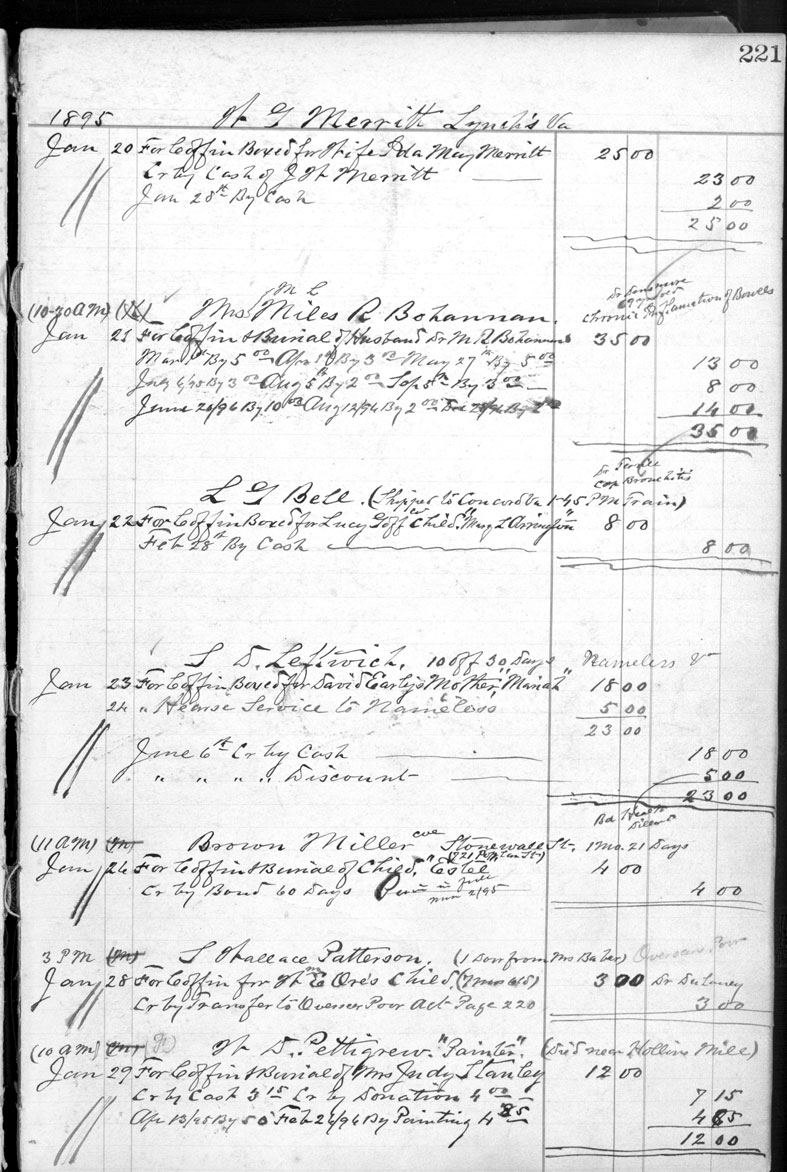 221
1895 W G Merritt Lynch's Va
Jan 20 For Coffin Boxed for Wife Ida May Merritt 25 00
Cr by Cash of J W Merritt 23 00
Jan 28th By Cash 2 00
25 00
Dr
69 yrs old
(10-30 AM) Mrs Miles R Bohannan. Chronic Inflamation of Bowels
Jan 21 For Coffin & Burial of Husband Dr M. R Bohannan 35 00
Mar By 5 00 Apr By 3 00 May 27th By 5 00 13 00
By 3 00 Aug 5th By 2 00 Sep 5th By 3 00 8 00
June 26/96 By 10 00 Aug 12/96 By 2 00 By 2 00 14 00
35 00
Dr Terrell
Cap Bronchitis
L G Bell. (Shipped to Concord Va 1-45 PM Train)
Jan 22 For Coffin Boxed for Lucy Goff Child, "Mary L Arrington" 8 00
Feb 28th By Cash 8 00
S D. Leftwich, 10 off 30 Days Nameless Va
Jan 23 For Coffin Boxed for David Early's Mother, "Mariah" 18 00
24 " Hearse Service to "Nameless" 5 00
23 00
June 6th Cr by Cash 18 00
" " " " Discount 5 00
23 00
Bd Health
(11 AM) Brown Miller col Stonewall St. 1 Mo. 21 Days
(721 St)
Jan 26 For Coffin & Burial of Child, "Estel" 4 00
Cr by Bond 60 Days in full 2/95 4 00
3 PM S Wallace Patterson. (1 Door from Mrs Baber) Overseer Poor
Jan 28 For Coffin for Wm E Ore's Child. (7 mos old) 3 00 Dr Dulaney
Cr by Transfer to Overseer Poor Act Page 220 3 00
(10 AM) W D. Pettigrew. "Painter". (Died near Hollins Mill)
Jan 29 For Coffin & Burial of Mrs Judy Stanley 12 00
Cr by Cash 3 15 Cr by Donation 4 00 7 15
Apr 13/95 By 50 Feb 26/96 By Painting 4 85
12 00